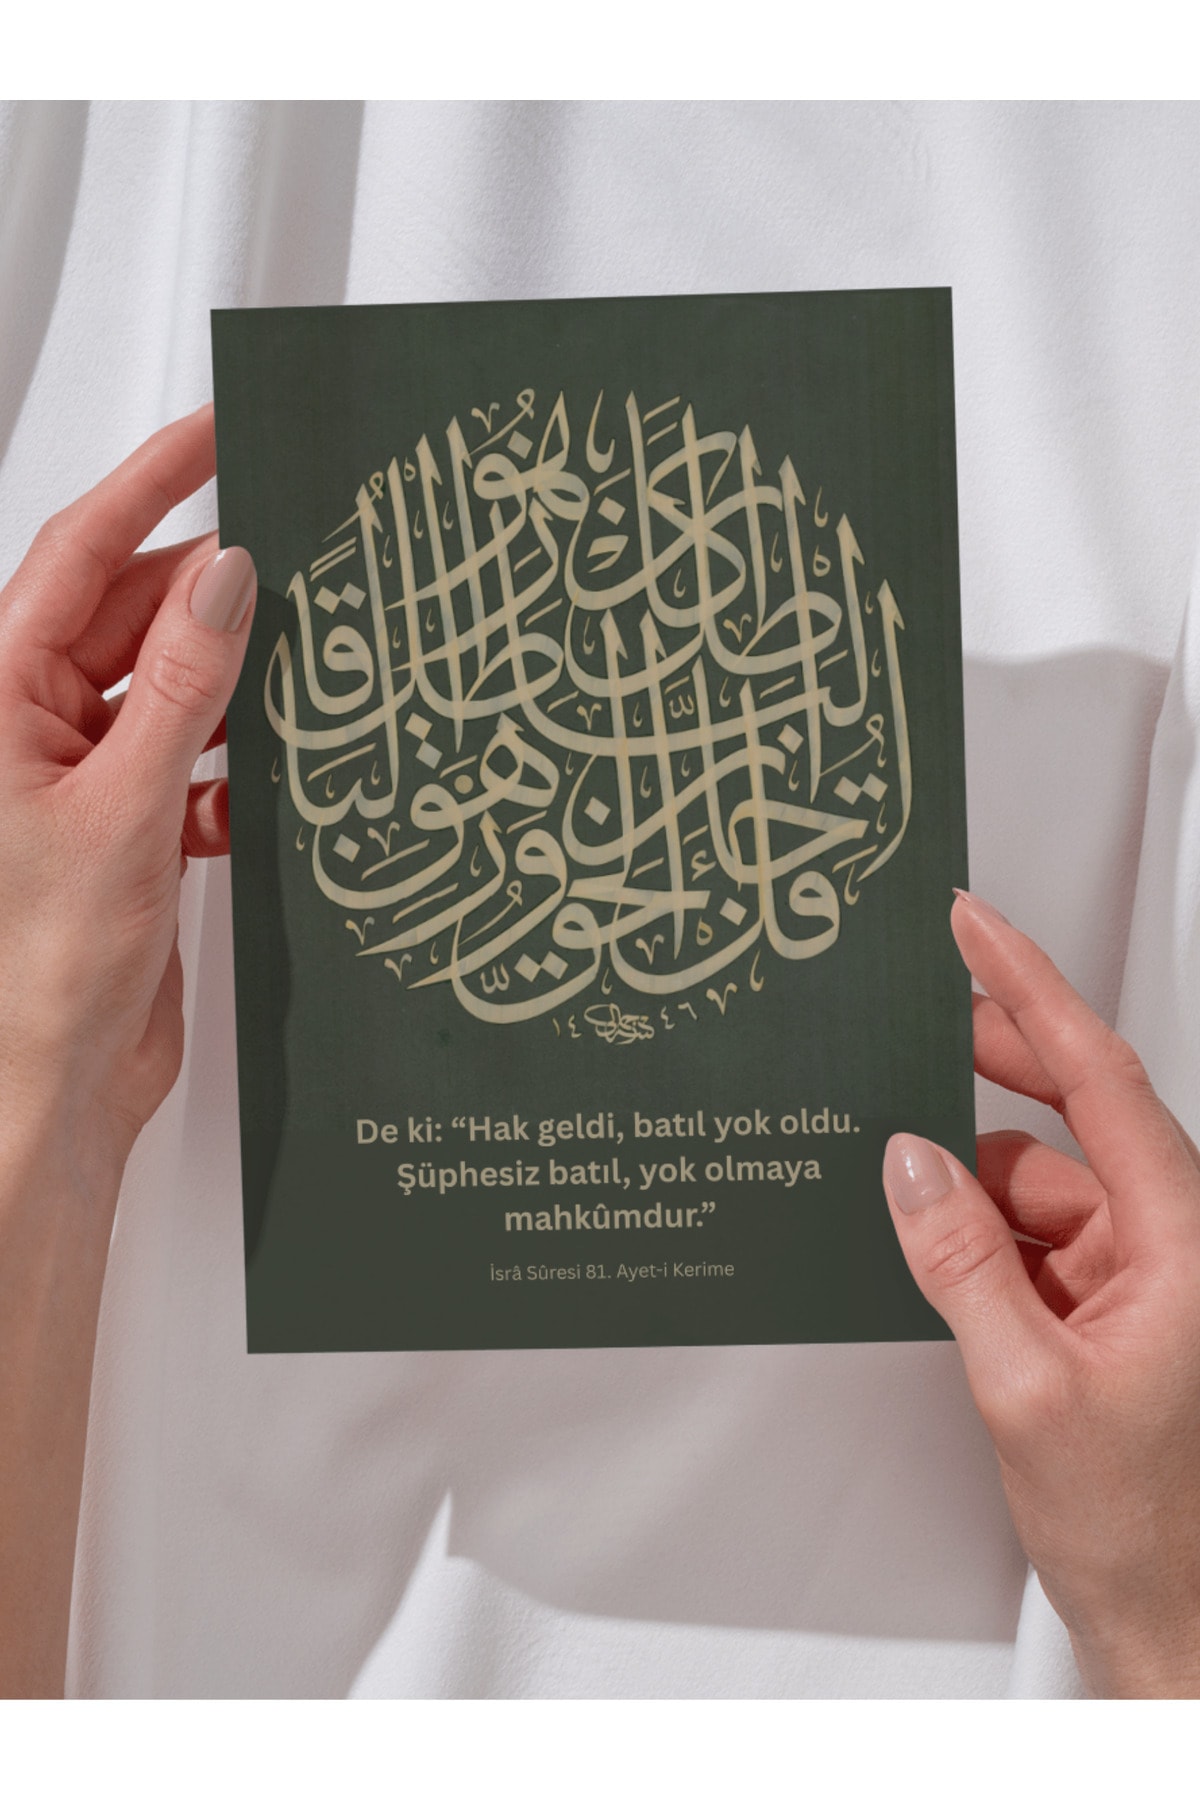 قُلْ جَاءَ الْحَقُّ وَزَهَقَ الْبَاطِلُ إِنَّ الْبَاطِلَ كَانَ زَهُوقًا
١٤ ٤٦
De ki: “Hak geldi, batıl yok oldu.
Şüphesiz batıl, yok olmaya
mahkûmdur.”
İsrâ Sûresi 81. Ayet-i Kerime